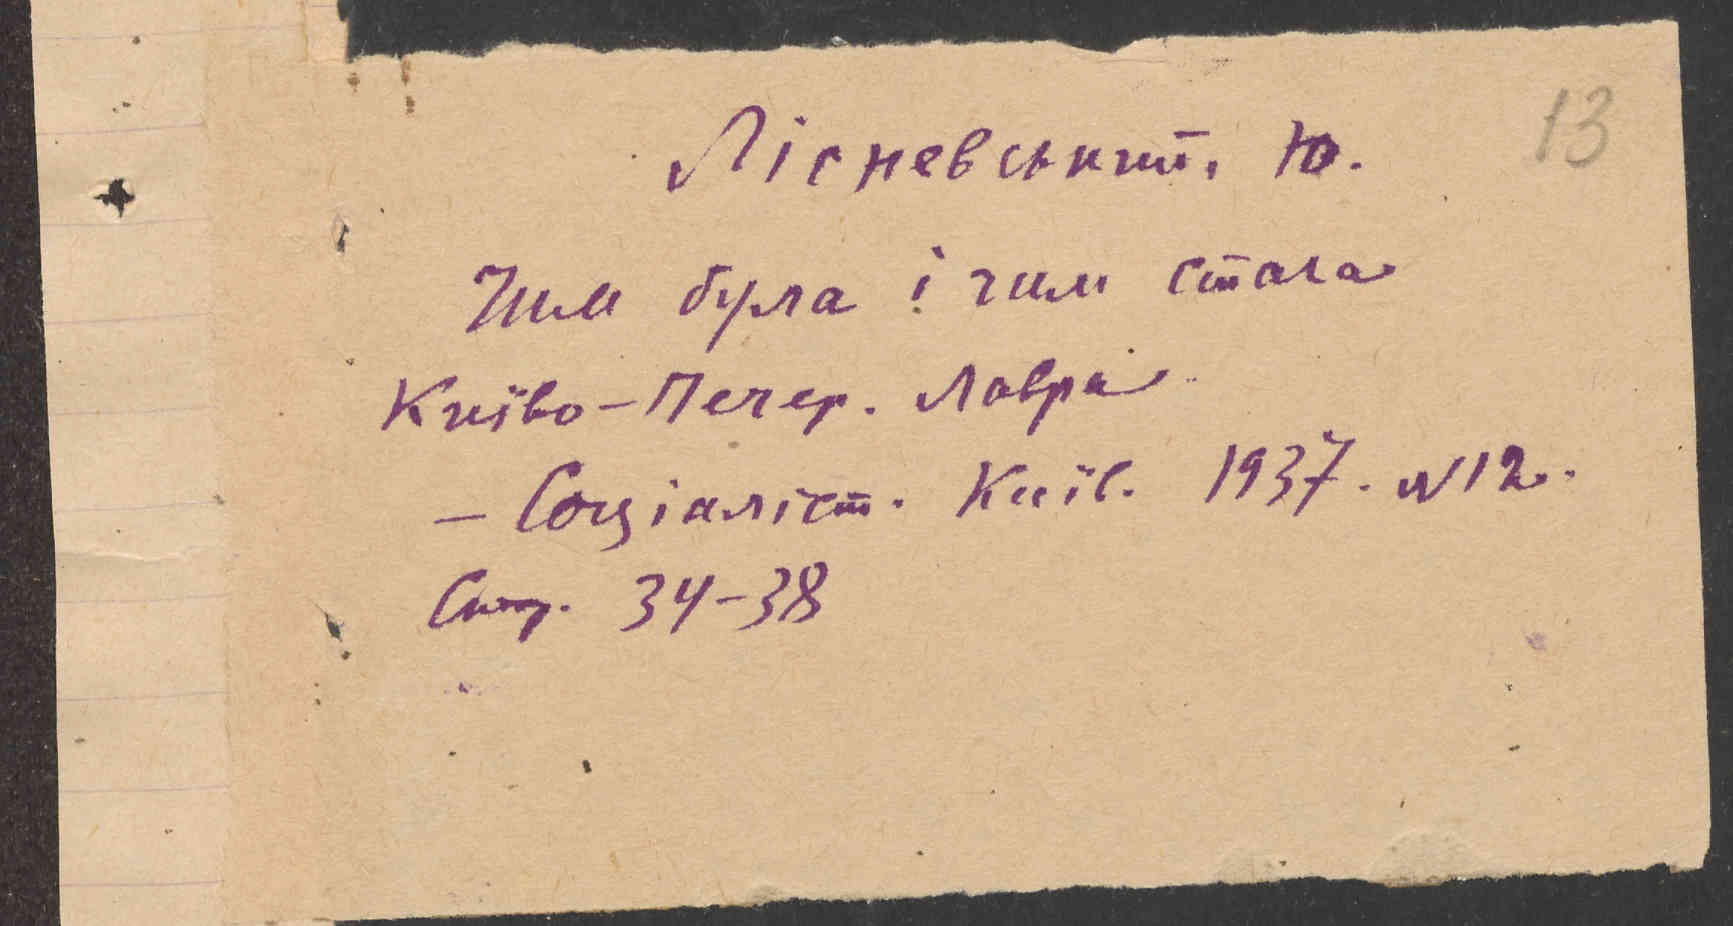 13
Лісневський, Ю.
Чим була і чим стала
Київо-Печер. Лавра
- Соціаліст. Київ. 1937. №12.
Стор. 34-38